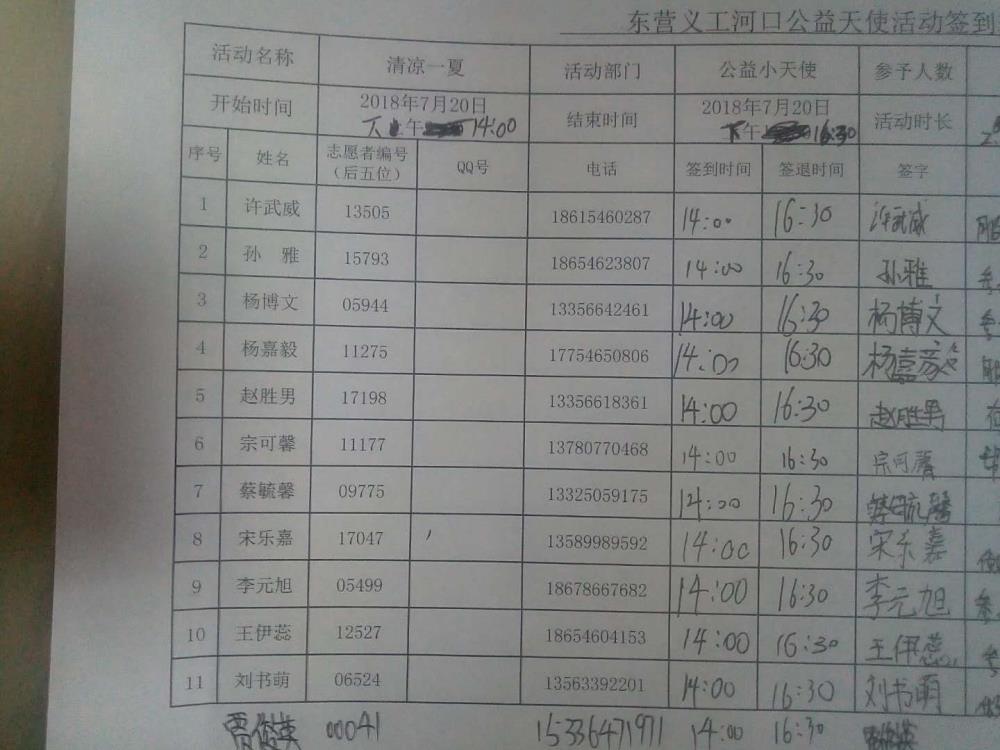 东营义工河口公益天使活动签到
活动名称 清凉一夏 活动部门 公益小天使 参予人数
开始时间 2018年7月20日 下午 14:00 结束时间 2018年7月20日 下午 16:30 活动时长
序号 姓名 志愿者编号（后五位） QQ号 电话 签到时间 签退时间 签字
1 许武威 13505 18615460287 14:00 16:30 许武威
2 孙 雅 15793 18654623807 14:00 16:30 孙雅
3 杨博文 05944 13356642461 14:00 16:30 杨博文
4 杨嘉毅 11275 17754650806 14:00 16:30 杨嘉毅
5 赵胜男 17198 13356618361 14:00 16:30 赵胜男
6 宗可馨 11177 13780770468 14:00 16:30 宗可馨
7 蔡毓馨 09775 13325059175 14:00 16:30 蔡毓馨
8 宋乐嘉 17047 13589989592 14:00 16:30 宋乐嘉
9 李元旭 05499 18678667682 14:00 16:30 李元旭
10 王伊蕊 12527 18654604153 14:00 16:30 王伊蕊
11 刘书萌 06524 13563392201 14:00 16:30 刘书萌
贾俊英 00041 15336471971 14:00 16:30